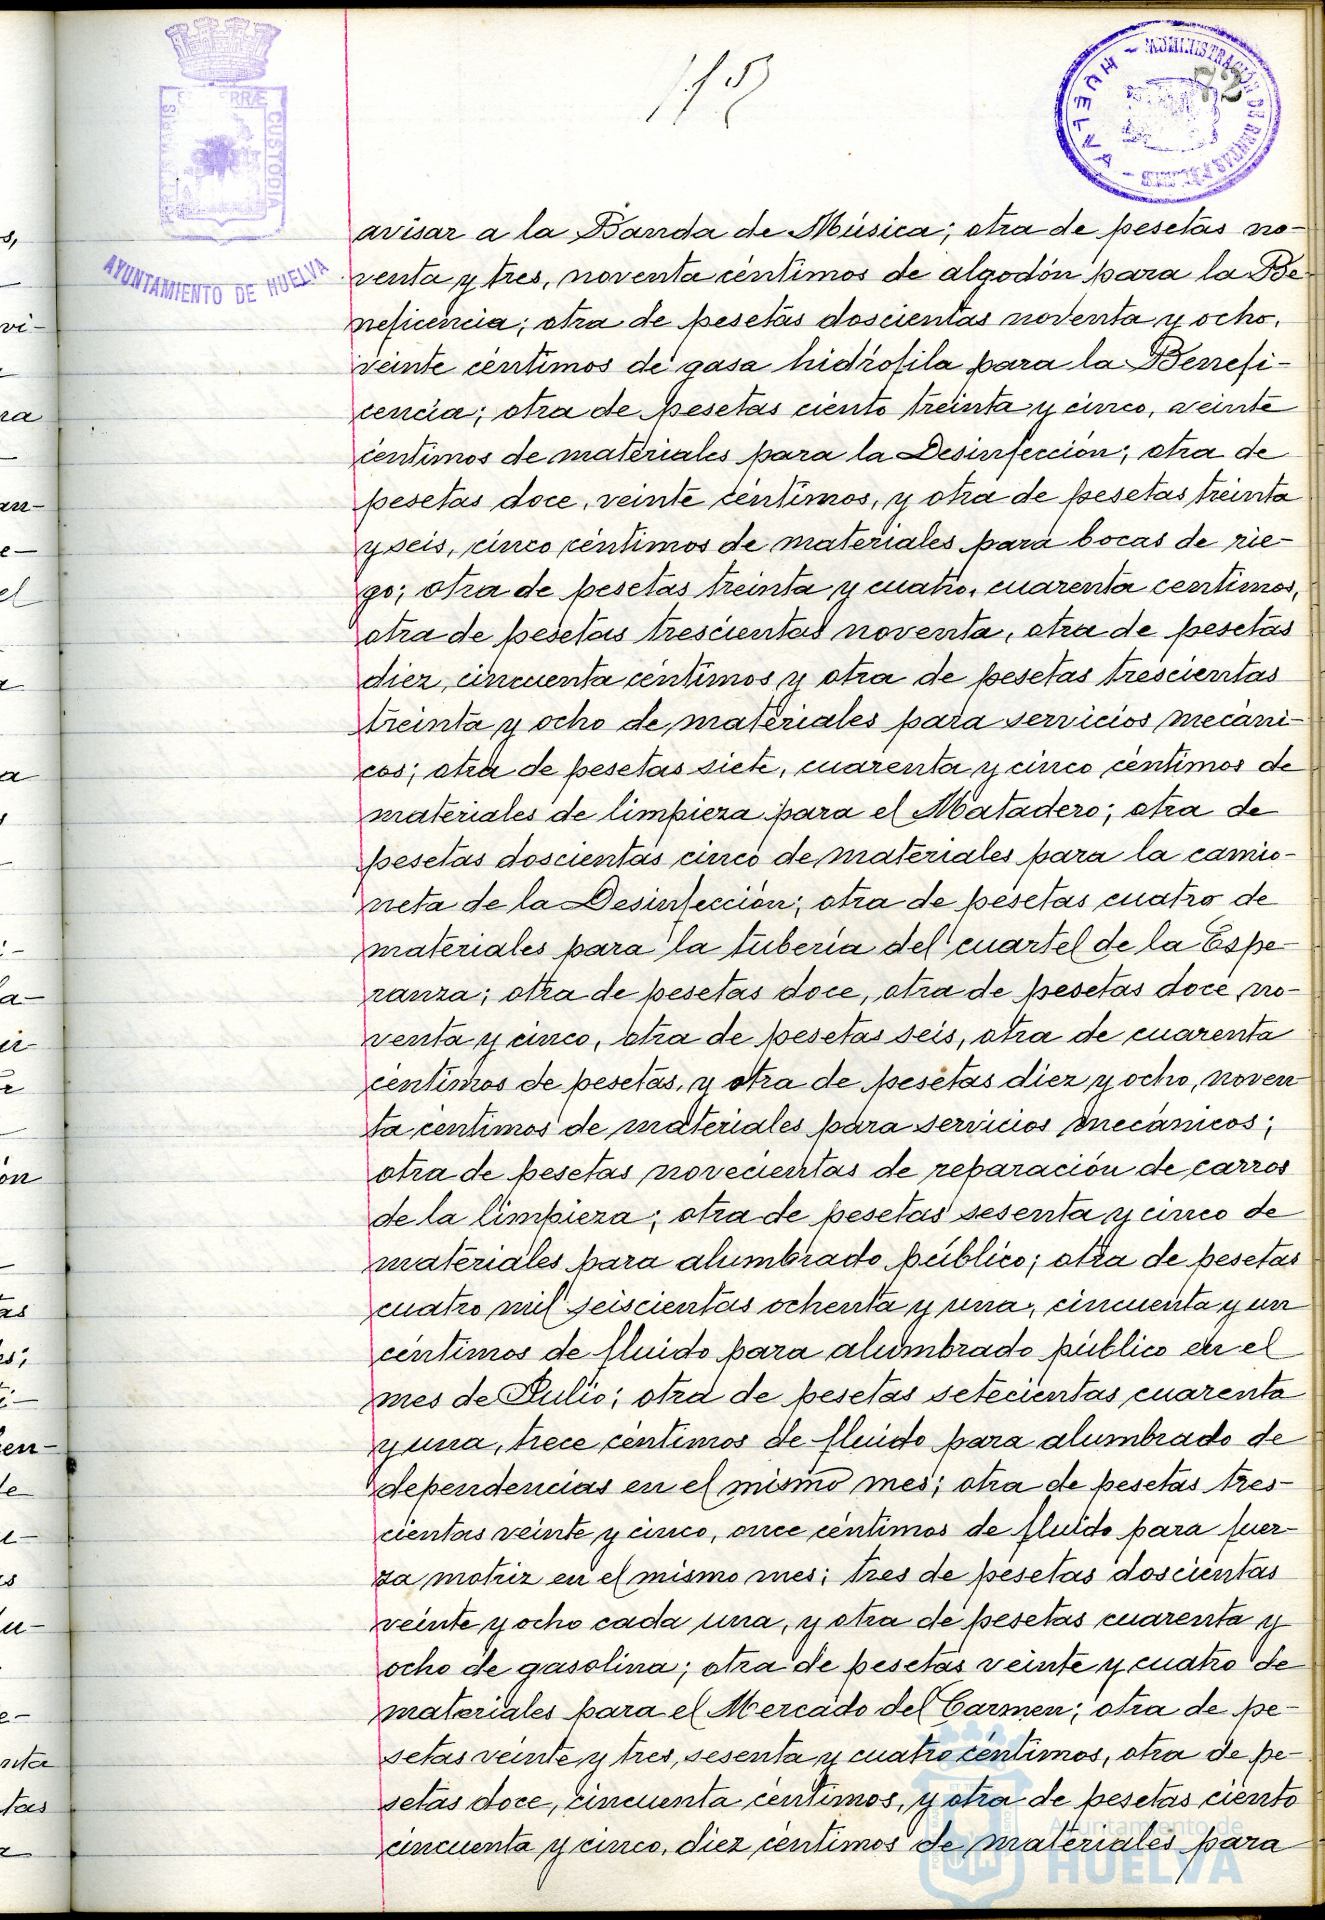 72
AYUNTAMIENTO DE HUELVA
HUELVA
avisar a la Banda de Música; otra de pesetas no-
venta y tres, noventa céntimos de algodón para la Be-
neficencia; otra de pesetas doscientas noventa y ocho,
veinte céntimos de gasa hidrófila para la Benefi-
cencia; otra de pesetas ciento treinta y cinco, veinte
céntimos de materiales para la Desinfección; otra de
pesetas doce, veinte céntimos, y otra de pesetas treinta
y seis, cinco céntimos de materiales para bocas de rie-
go; otra de pesetas treinta y cuatro, cuarenta centimos,
otra de pesetas trescientas noventa, otra de pesetas
diez, cincuenta céntimos y otra de pesetas trescientas
treinta y ocho de materiales para servicios mecáni-
cos; otra de pesetas siete, cuarenta y cinco céntimos de
materiales de limpieza para el Matadero; otra de
pesetas doscientas cinco de materiales para la camio-
neta de la Desinfección; otra de pesetas cuatro de
materiales para la tubería del cuartel de la Espe-
ranza; otra de pesetas doce, otra de pesetas doce, no-
venta y cinco, otra de pesetas seis, otra de cuarenta
céntimos de pesetas, y otra de pesetas diez y ocho, noven-
ta céntimos de materiales para servicios mecánicos;
otra de pesetas novecientas de reparación de carros
de la limpieza; otra de pesetas sesenta y cinco de
materiales para alumbrado público; otra de pesetas
cuatro mil seiscientas ochenta y una, cincuenta y un
céntimos de fluido para alumbrado público en el
mes de Julio; otra de pesetas setecientas cuarenta
y una, trece céntimos de fluido para alumbrado de
dependencias en el mismo mes; otra de pesetas tres-
cientas veinte y cinco, once céntimos de fluido para fuer-
za motriz en el mismo mes; tres de pesetas doscientas
veinte y ocho cada una, y otra de pesetas cuarenta y
ocho de gasolina; otra de pesetas veinte y cuatro de
materiales para el Mercado del Carmen; otra de pe-
setas veinte y tres, sesenta y cuatro céntimos, otra de pe-
setas doce, cincuenta céntimos, y otra de pesetas ciento
cincuenta y cinco, diez céntimos de materiales para
Ayuntamiento de
HUELVA